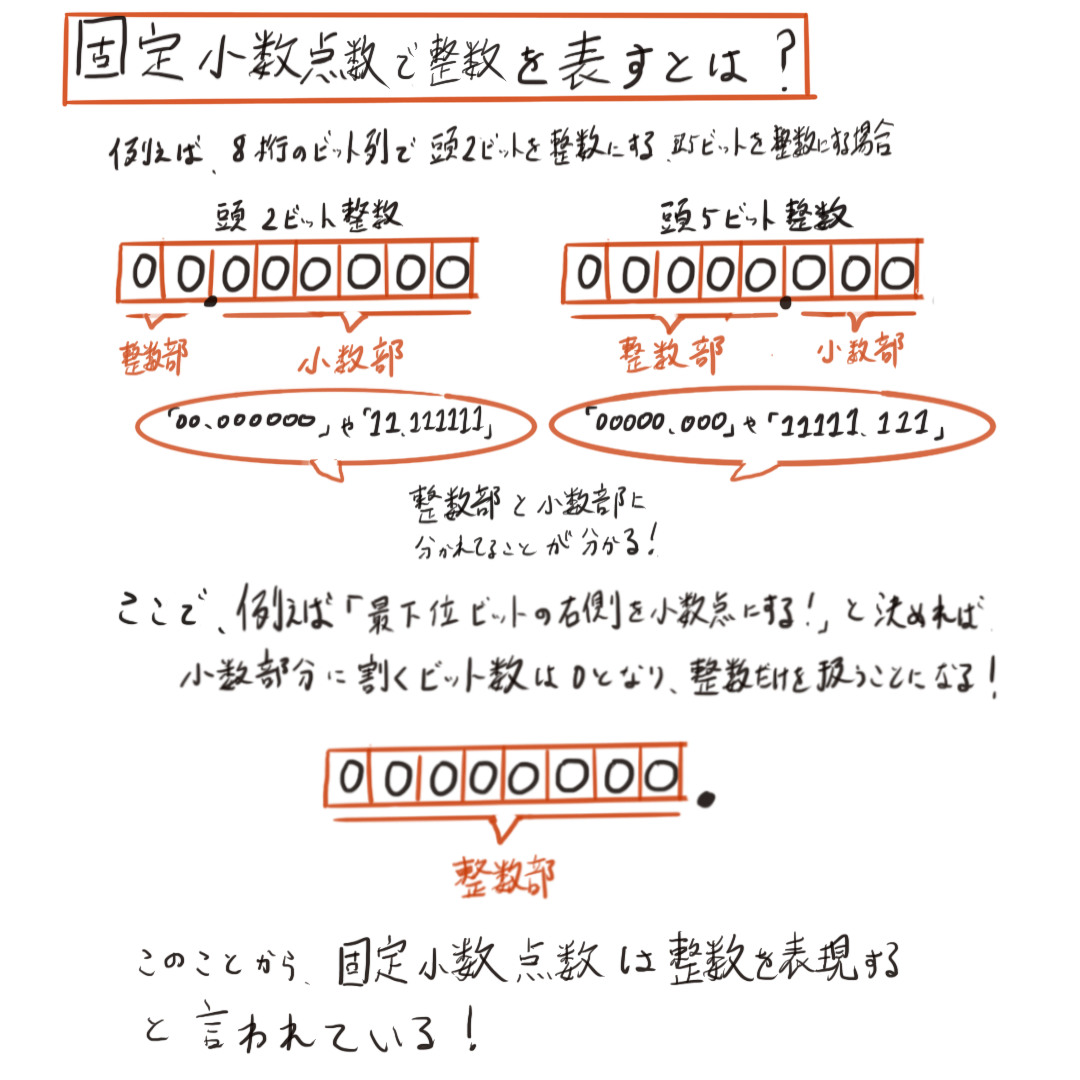 固定小数点数で整数を表すとは?
例えば、8桁のビット列で頭2ビットを整数にする、頭5ビットを整数にする場合
頭2ビット整数
00.000000
整数部 小数部
「00.000000」や「11.111111」
頭5ビット整数
00000.000
整数部 小数部
「00000.000」や「11111.111」
整数部と小数部に
分かれてることが分かる!
ここで、例えば「最下位ビットの右側を小数点にする!」と決めれば
小数部分に割くビット数は0となり、整数だけを扱うことになる!
00000000.
整数部
このことから、固定小数点数は整数を表現する
と言われている!